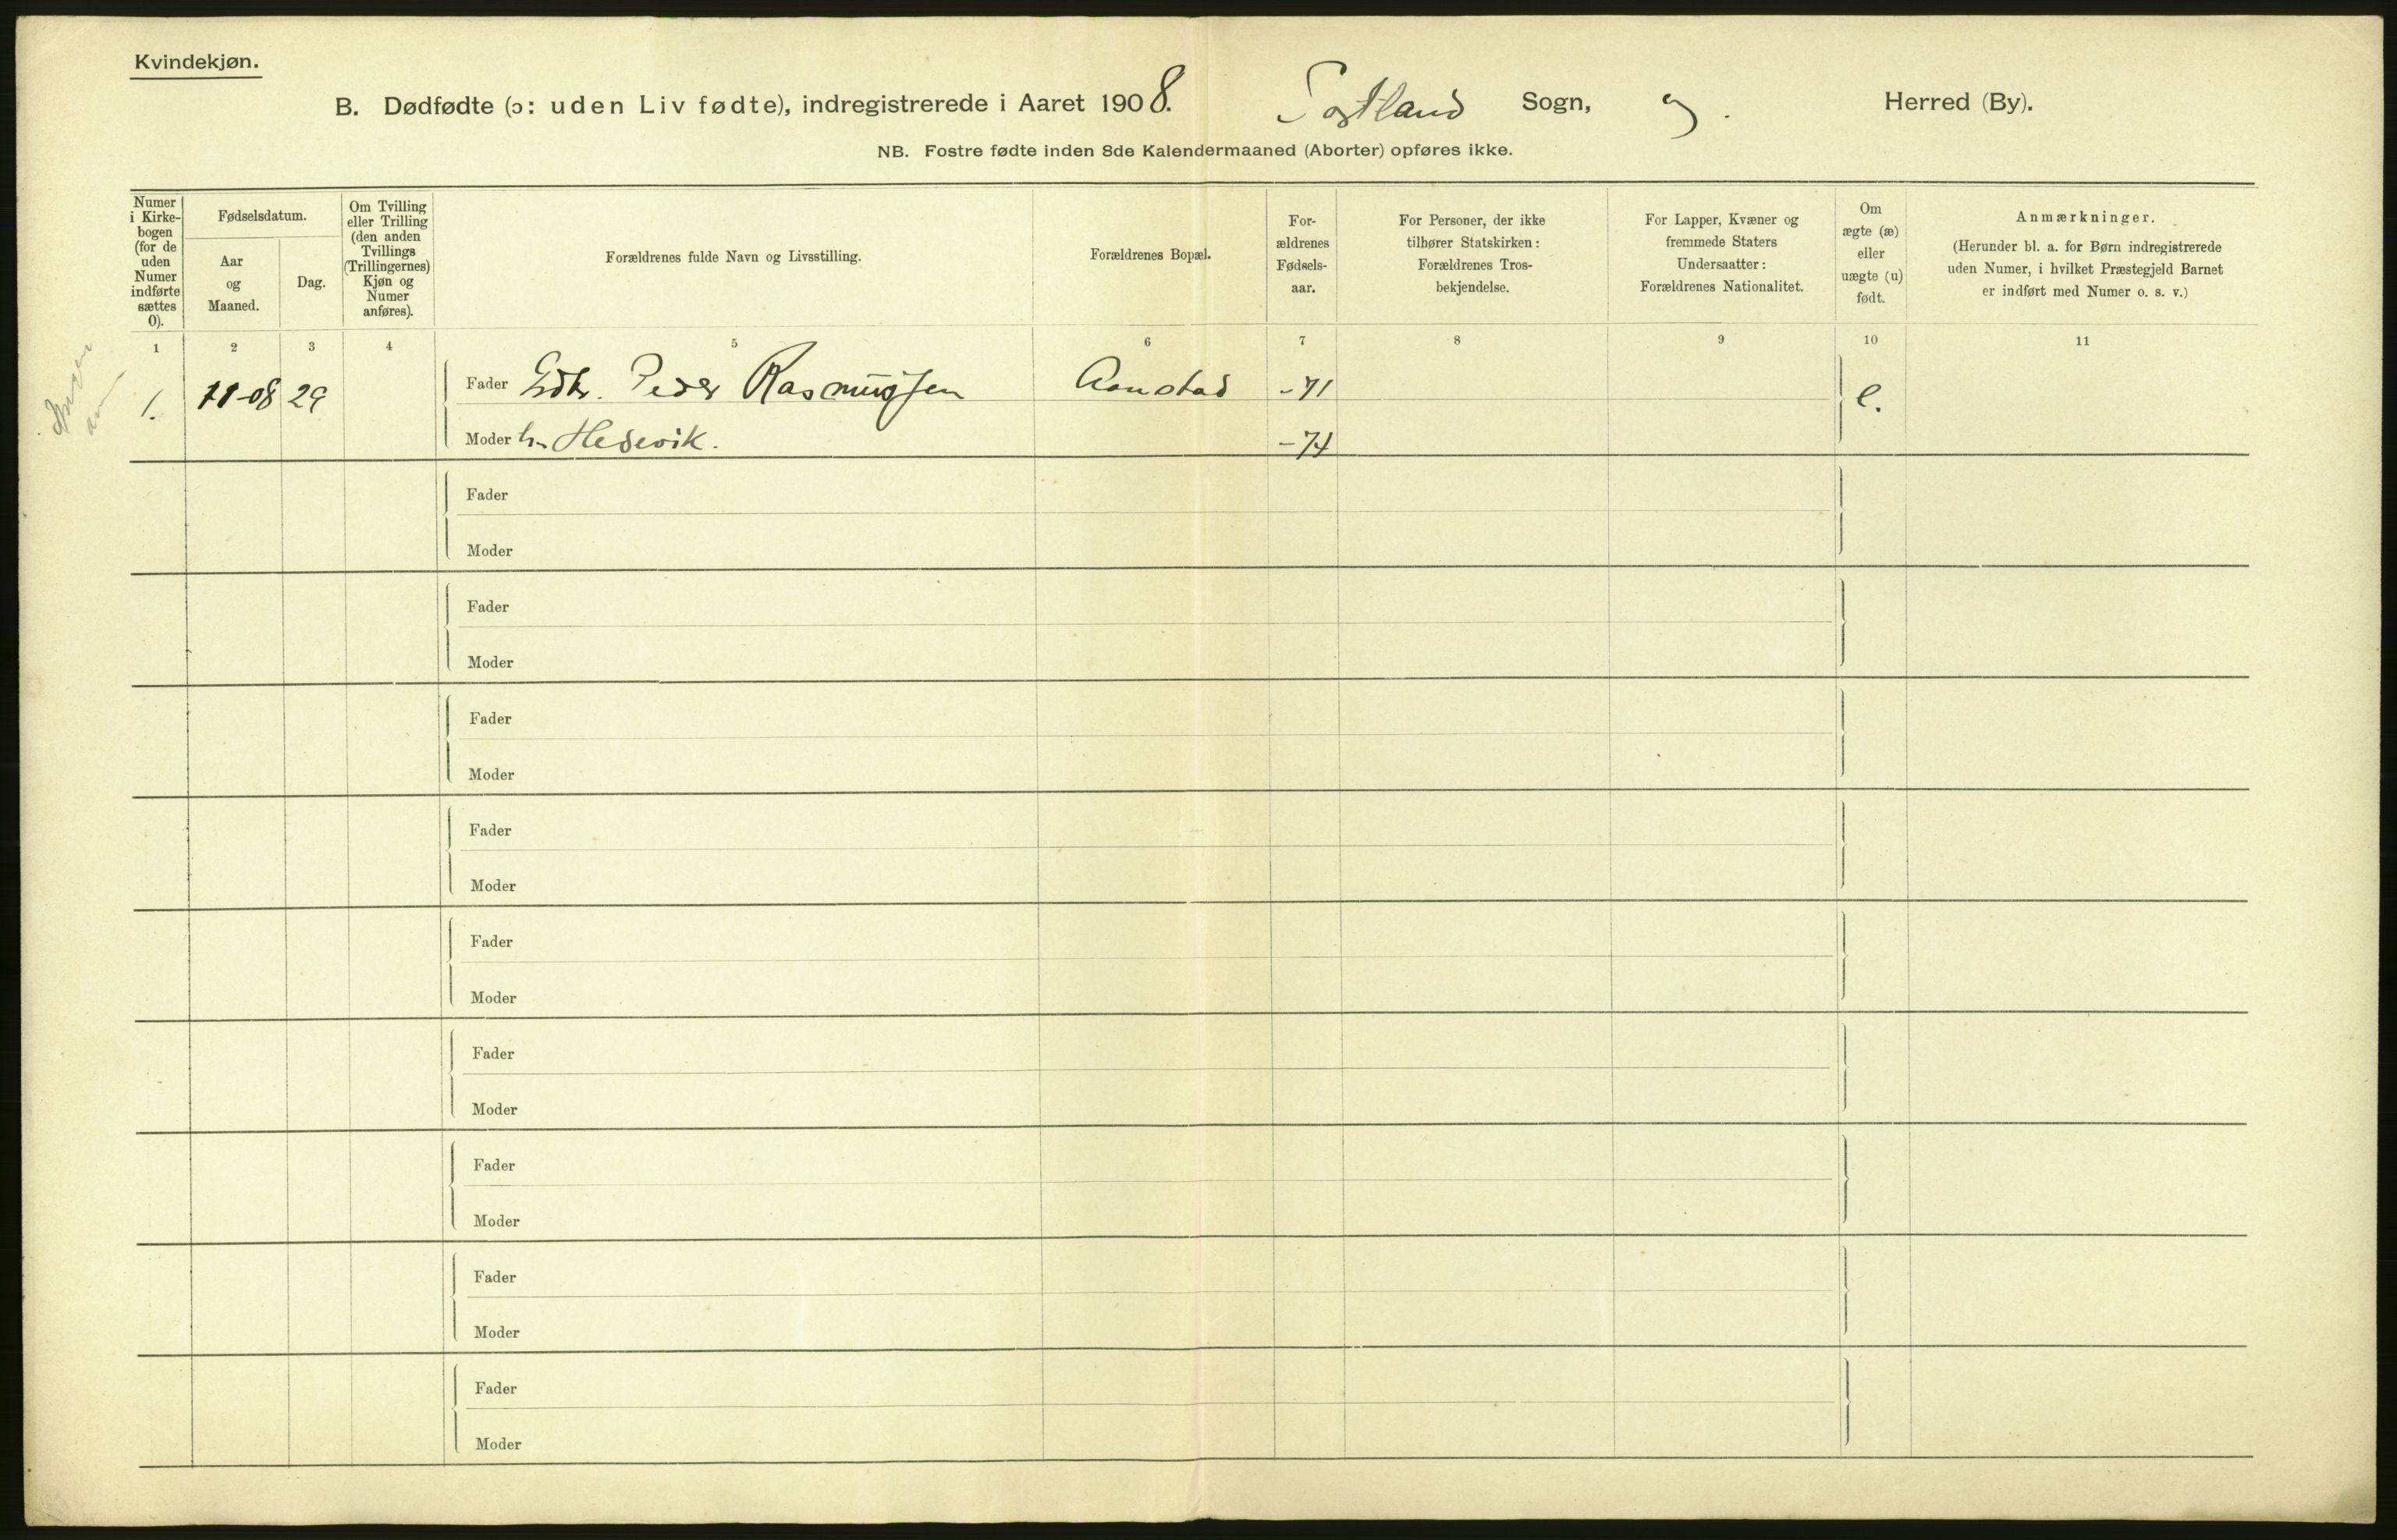 Kvindekjøn.
B. Dødfødte (ɔ: uden Liv fødte), indregistrerede i Aaret 1908. Sogn, og. Herred (By).
NB. Fostre fødte inden 8de Kalendermaaned (Aborter) opføres ikke.
Numer i Kirke-bogen (for de uden Numer indførte sættes 0).
Fødselsdatum.
Aar og Maaned.
Dag.
Om Tvilling eller Trilling (den anden Tvillings (Trillingernes) Kjøn og Numer anføres).
Forældrenes fulde Navn og Livsstilling.
Forældrenes Bopæl.
For-ældrenes Fødsels-aar.
For Personer, der ikke tilhører Statskirken: Forældrenes Tros-bekjendelse.
For Lapper, Kvæner og fremmede Staters Undersaatter: Forældrenes Nationalitet.
Om ægte (æ) eller uægte (u) født.
Anmærkninger. (Herunder bl. a. for Børn indregistrerede uden Numer, i hvilket Præstegjeld Barnet er indført med Numer o. s. v.)
1 2 3 4 5 6 7 8 9 10 11
1. 11-08 29 Fader Gdbr. Peder Rasmussen -71 e.
Moder h. Hedevik. -74
Fader
Moder
Fader
Moder
Fader
Moder
Fader
Moder
Fader
Moder
Fader
Moder
Fader
Moder
Fader
Moder
Fader
Moder